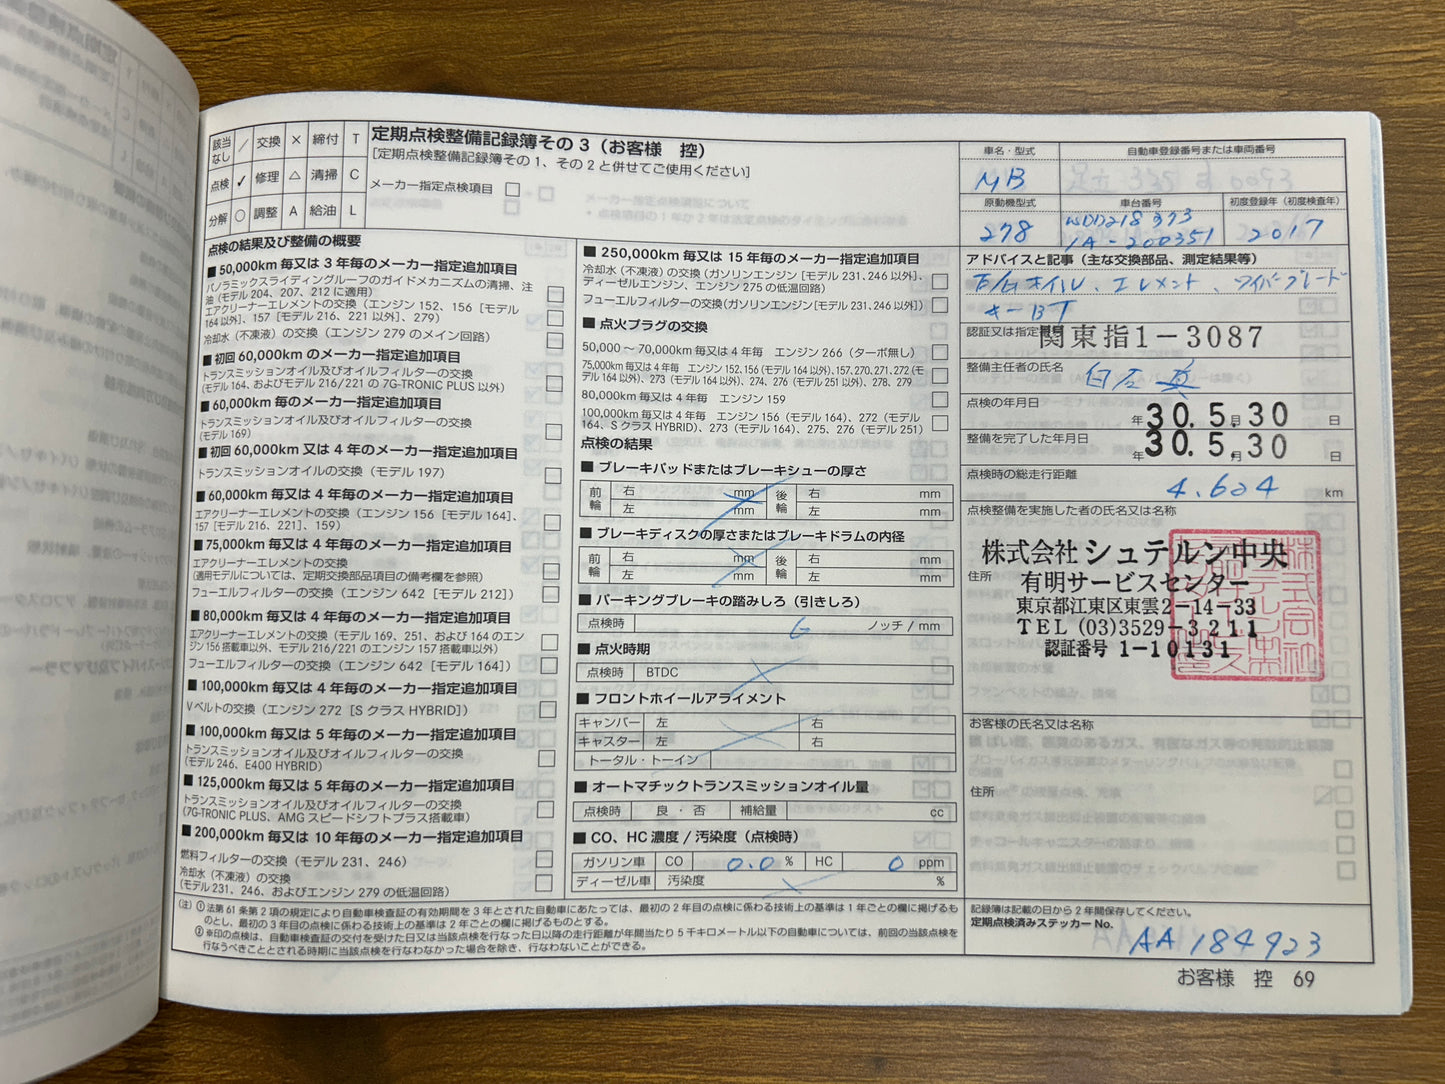 該当なし ／ 交換 × 締付 T
点検 ✓ 修理 △ 清掃 C
分解 ○ 調整 A 給油 L
定期点検整備記録簿その3（お客様　控）
[定期点検整備記録簿その1、その2と併せてご使用ください]
メーカー指定点検項目 □
点検の結果及び整備の概要
■ 50,000km 毎又は 3 年毎のメーカー指定追加項目
パノラミックスライディングルーフのガイドメカニズムの清掃、注
油（モデル 204、207、212 に適用） □
エアクリーナーエレメントの交換（エンジン 152、156［モデル
164 以外］、157［モデル 216、221 以外］、279） □
冷却水（不凍液）の交換（エンジン 279 のメイン回路） □
■ 初回 60,000km のメーカー指定追加項目
トランスミッションオイル及びオイルフィルターの交換
（モデル 164、およびモデル 216/221 の 7G-TRONIC PLUS 以外） □
■ 60,000km 毎のメーカー指定追加項目
トランスミッションオイル及びオイルフィルターの交換
（モデル 169） □
■ 初回 60,000km 又は 4 年毎のメーカー指定追加項目
トランスミッションオイルの交換（モデル 197） □
■ 60,000km 毎又は 4 年毎のメーカー指定追加項目
エアクリーナーエレメントの交換（エンジン 156［モデル 164］、
157［モデル 216、221］、159） □
■ 75,000km 毎又は 4 年毎のメーカー指定追加項目
エアクリーナーエレメントの交換
（適用モデルについては、定期交換部品項目の備考欄を参照） □
フューエルフィルターの交換（エンジン 642［モデル 212］） □
■ 80,000km 毎又は 4 年毎のメーカー指定追加項目
エアクリーナーエレメントの交換（モデル 169、251、および 164 のエン
ジン 156 搭載車以外、モデル 216/221 のエンジン 157 搭載車以外） □
フューエルフィルターの交換（エンジン 642［モデル 164］） □
■ 100,000km 毎又は 4 年毎のメーカー指定追加項目
V ベルトの交換（エンジン 272［S クラス HYBRID］） □
■ 100,000km 毎又は 5 年毎のメーカー指定追加項目
トランスミッションオイル及びオイルフィルターの交換
（モデル 246、E400 HYBRID） □
■ 125,000km 毎又は 5 年毎のメーカー指定追加項目
トランスミッションオイル及びオイルフィルターの交換
（7G-TRONIC PLUS、AMG スピードシフトプラス搭載車） □
■ 200,000km 毎又は 10 年毎のメーカー指定追加項目
燃料フィルターの交換（モデル 231、246） □
冷却水（不凍液）の交換
（モデル 231、246、およびエンジン 279 の低温回路） □
■ 250,000km 毎又は 15 年毎のメーカー指定追加項目
冷却水（不凍液）の交換（ガソリンエンジン［モデル 231、246 以外］、
ディーゼルエンジン、エンジン 275 の低温回路） □
フューエルフィルターの交換（ガソリンエンジン［モデル 231、246 以外］） □
■ 点火プラグの交換
50,000 ～ 70,000km 毎又は 4 年毎　エンジン 266（ターボ無し） □
75,000km 毎又は 4 年毎　エンジン 152、156（モデル 164 以外）、157、270、271、272（モ
デル 164 以外）、273（モデル 164 以外）、274、276（モデル 251 以外）、278、279 □
80,000km 毎又は 4 年毎　エンジン 159 □
100,000km 毎又は 4 年毎　エンジン 156（モデル 164）、272（モデル
164、S クラス HYBRID）、273（モデル 164）、275、276（モデル 251） □
点検の結果
■ ブレーキパッドまたはブレーキシューの厚さ
前輪 右 mm 後輪 右 mm
左 mm 左 mm
■ ブレーキディスクの厚さまたはブレーキドラムの内径
前輪 右 mm 後輪 右 mm
左 mm 左 mm
■ パーキングブレーキの踏みしろ（引きしろ）
点検時 6 ノッチ / mm
■ 点火時期
点検時 BTDC
■ フロントホイールアライメント
キャンバー 左 右
キャスター 左 右
トータル・トーイン
■ オートマチックトランスミッションオイル量
点検時 良 ・ 否 補給量 cc
■ CO、HC 濃度 / 汚染度（点検時）
ガソリン車 CO 0.0 % HC 0 ppm
ディーゼル車 汚染度 %
（注）① 法第 61 条第 2 項の規定により自動車検査証の有効期間を 3 年とされた自動車にあたっては、最初の 2 年目の点検に係わる技術上の基準は 1 年ごとの欄に掲げるも
のとし、最初の 3 年目の点検に係わる技術上の基準は 2 年ごとの欄に掲げるものとする。
② ※印の点検は、自動車検査証の交付を受けた日又は当該点検を行なった日以降の走行距離が年間当たり 5 千キロメートル以下の自動車については、前回の当該点検を
行なうべきこととされる時期に当該点検を行なわなかった場合を除き、行なわないことができる。
車名・型式 自動車登録番号または車両番号
MB
原動機型式 車台番号 初度登録年（初度検査年）
278 WDD218373 2017
1A-200351
アドバイスと記事（主な交換部品、測定結果等）
オイル、エレメント、ワイパーブレード
キーBT
認証又は指定 関東指1－3087
整備主任者の氏名 白石 真
点検の年月日
年 30. 5. 月 30 日
整備を完了した年月日
年 30. 5. 月 30 日
点検時の総走行距離
4,624 km
点検整備を実施した者の氏名又は名称
株式会社 シュテルン中央
住所 有明サービスセンター
東京都江東区東雲2－14－33
TEL (03)3529－3211
認証番号 1－10131
お客様の氏名又は名称
住所
記録簿は記載の日から 2 年間保存してください。
定期点検済みステッカー No.
AA184923
お客様　控　69